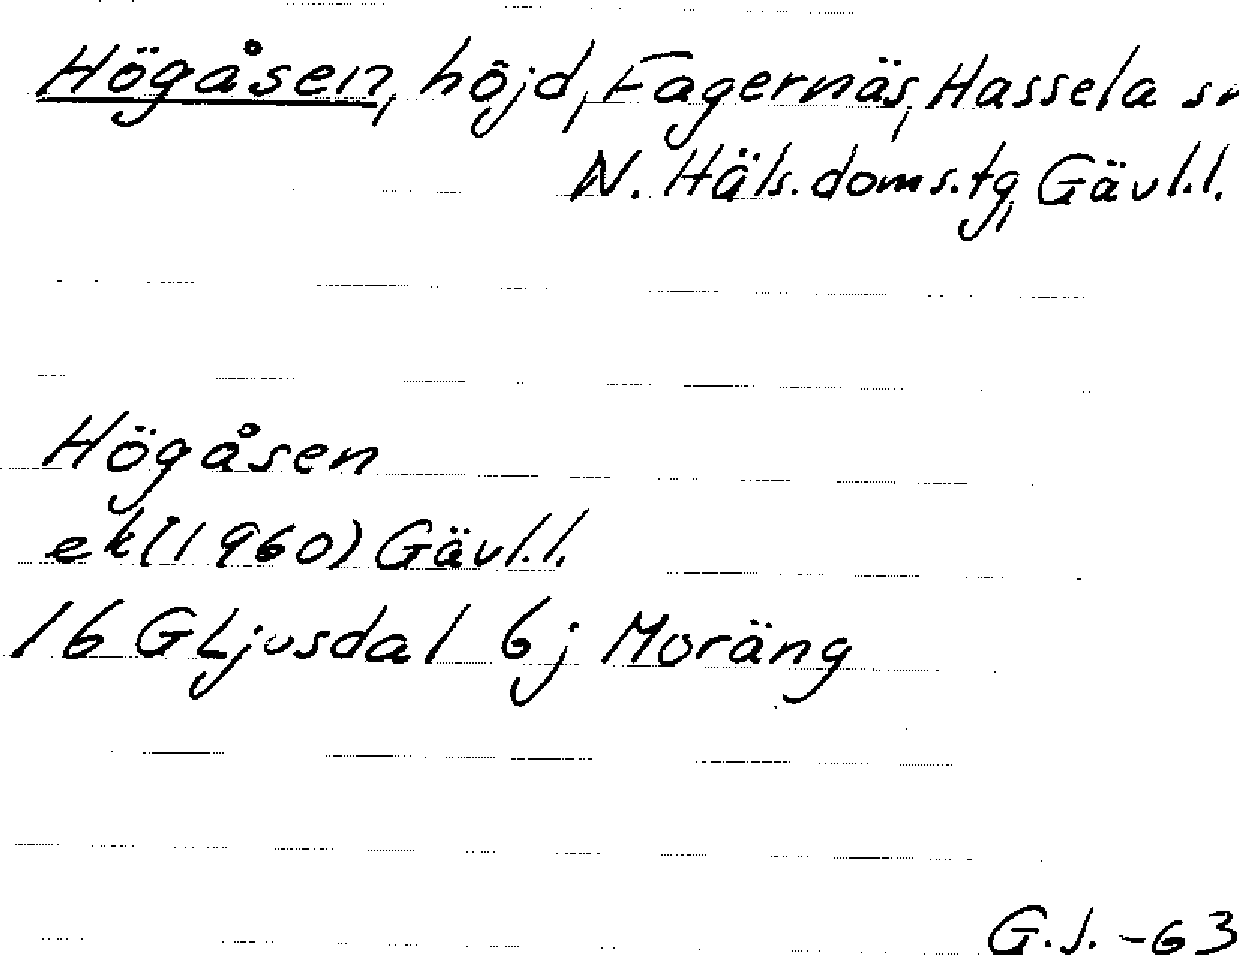 Högåsen, höjd, Fagernäs, Hassela sn
N. Häls. doms.tg, Gävl.l.
Högåsen
ek(1960) Gävl.l.
16 G Ljusdal 6j Moräng
G.J. -63